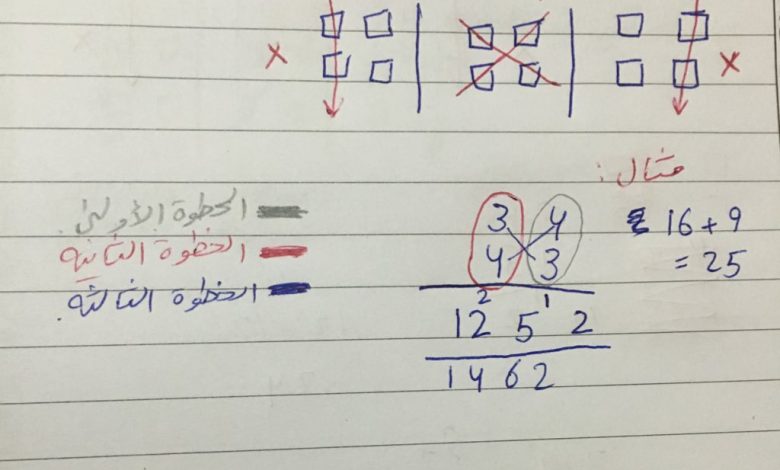 ×
×
مثال :
الخطوة الأولى.
الخطوة الثانية
الخطوة الثالثة.
3 4
4 3
16 + 9
= 25
2 1
12 5 2
1462